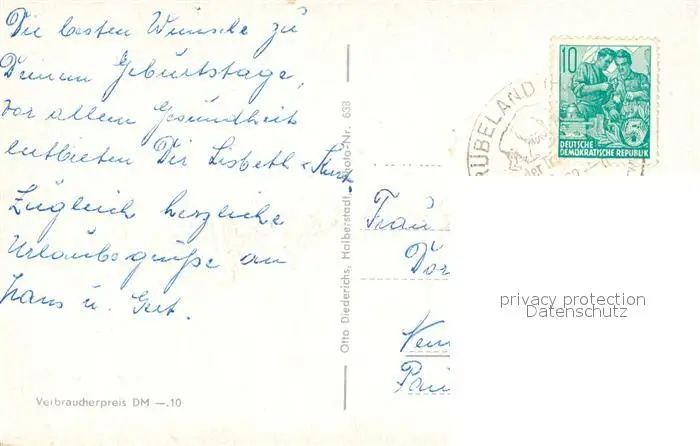 Die besten Wünsche zu
Deinem Geburtstage,
vor allem Gesundheit
entbieten Dir Lisbeth u. Kurt.
Zugleich herzliche
Urlaubsgrüße an
Hans u. Gert.
Verbraucherpreis DM —.10
Otto Diederichs, Halberstadt, Photo-Nr. 638
10
DEUTSCHE
DEMOKRATISCHE REPUBLIK
RÜBELAND (
Frau
privacy protection
Datenschutz